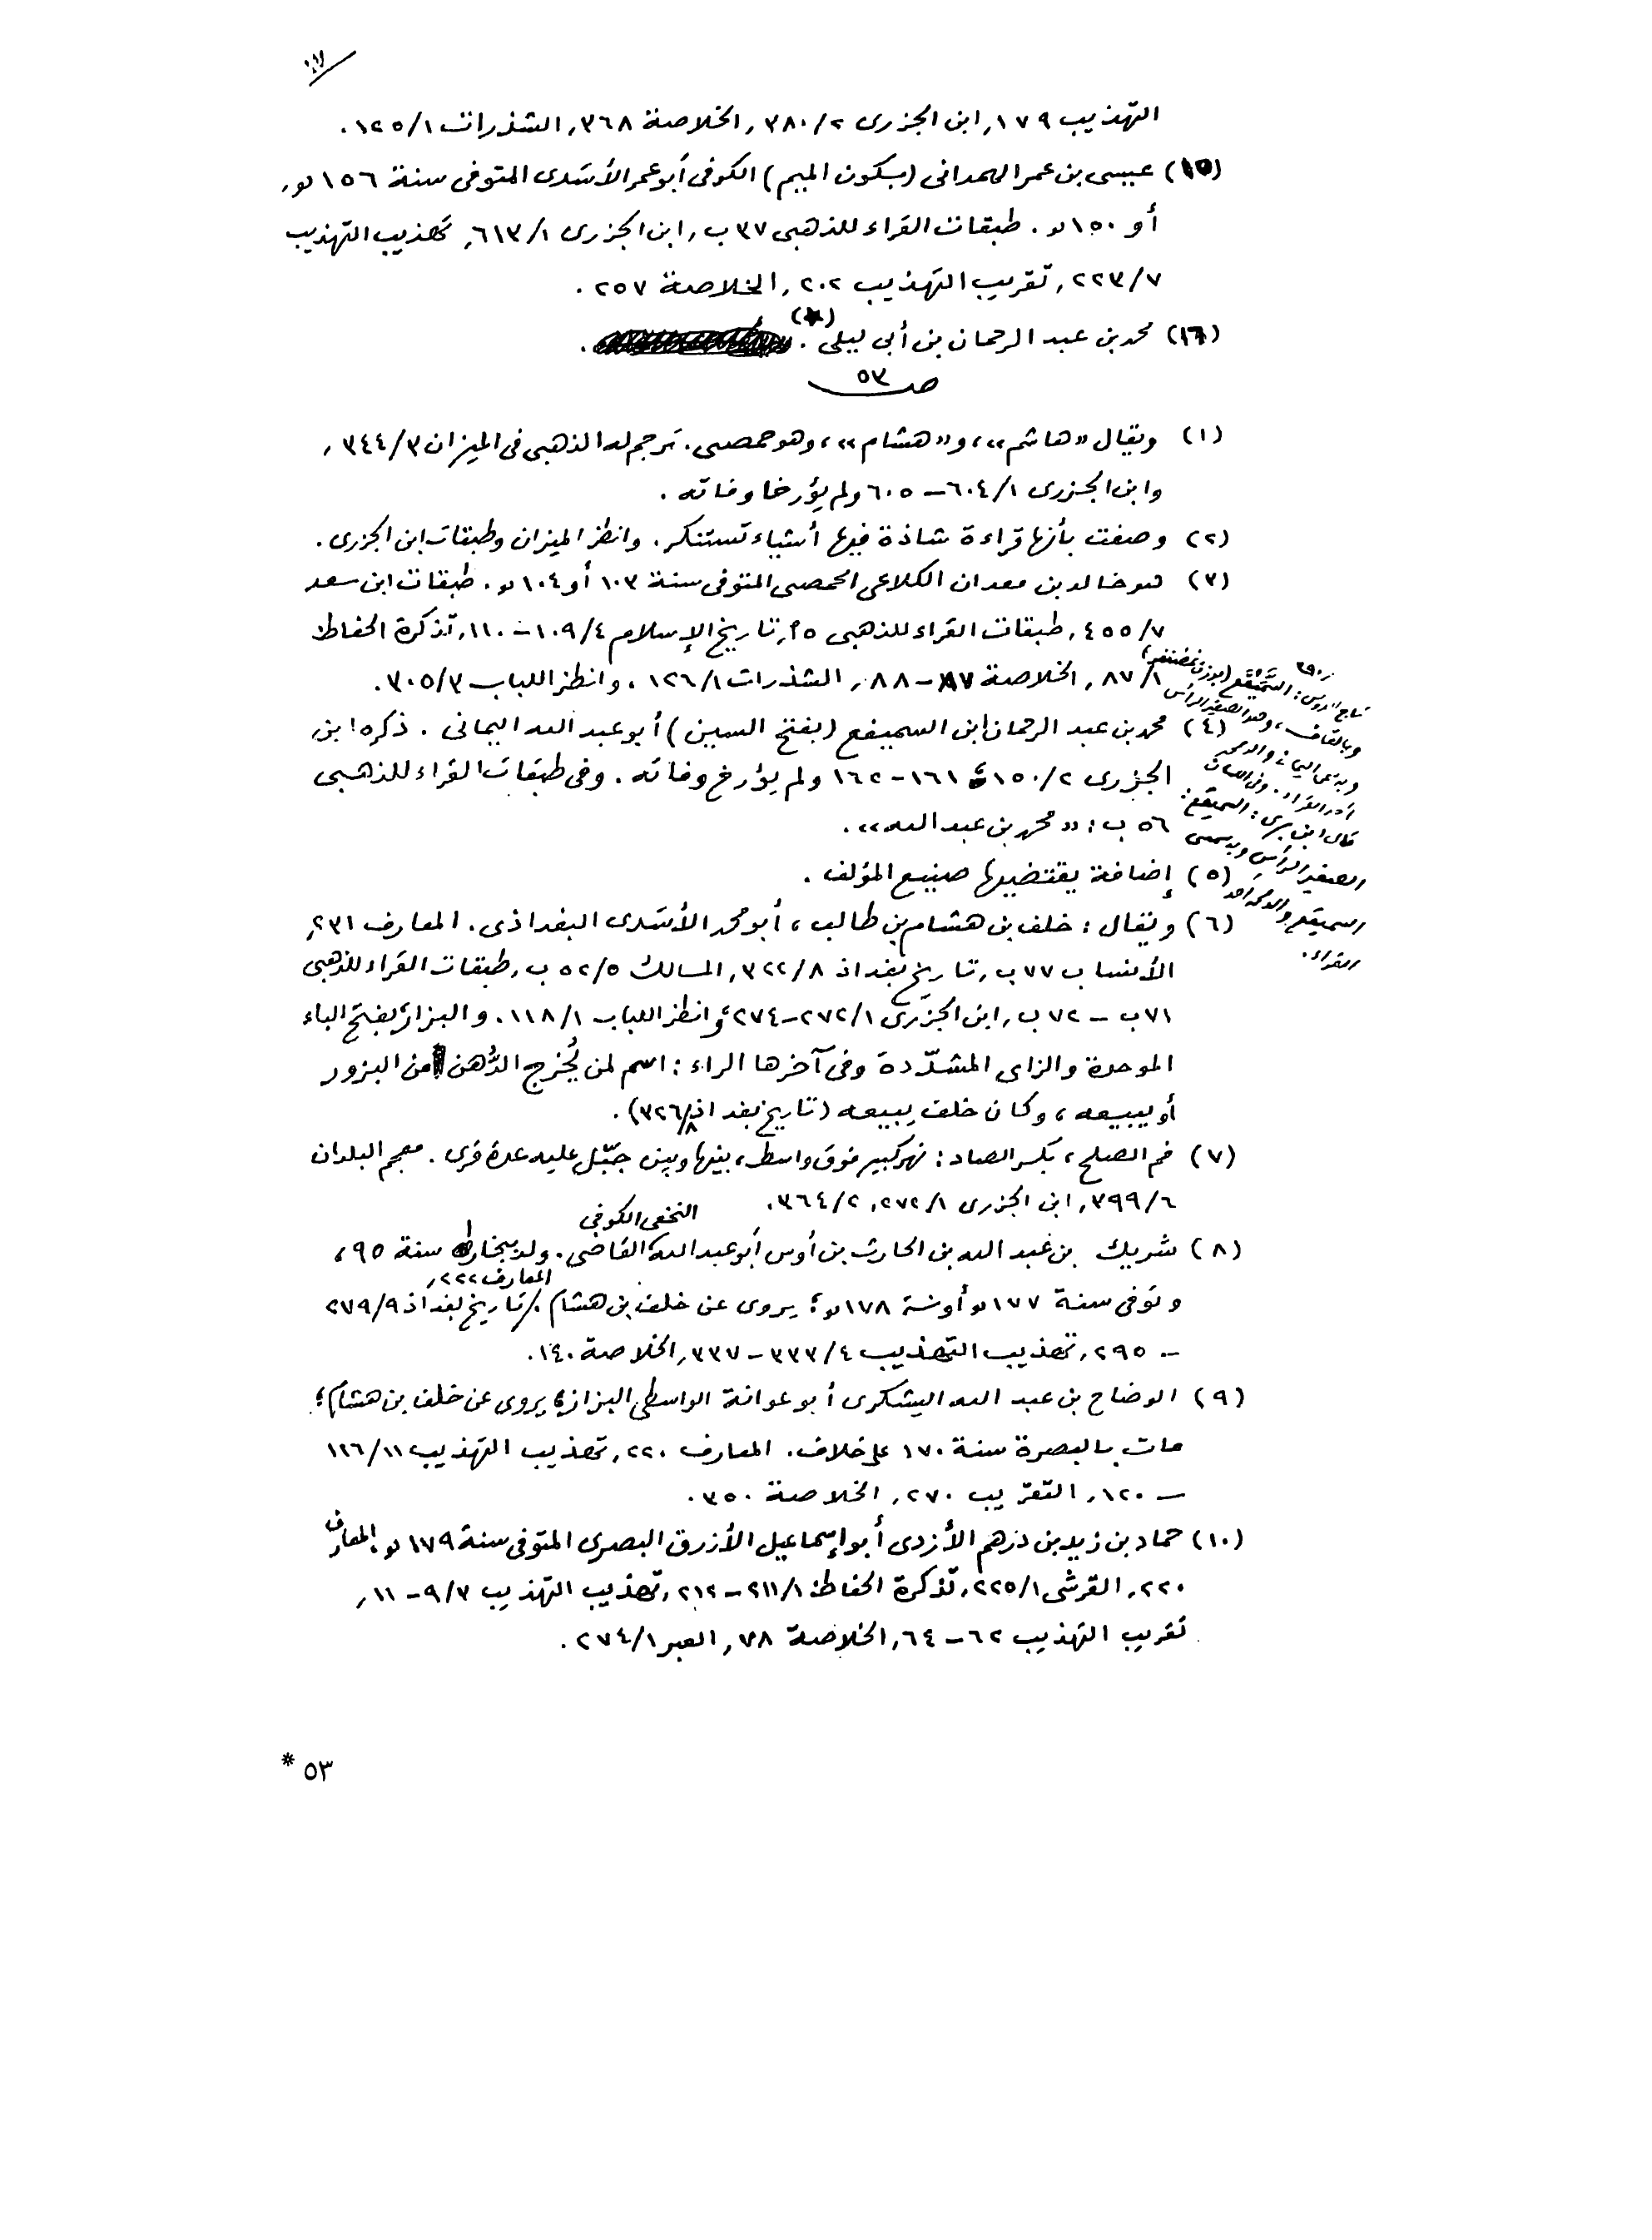 التهذيب ١٧٩, ابن الجزرى ٣٨٠/٢, الخلاصة ٣٦٨, الشذرات ١٢٥/١.
(١٥) عيسى بن عمر الهمدانى (بسكون الميم) الكوفى أبو عمر الأسَدى المتوفى سنة ١٥٦ هـ,
أو ١٥٠ هـ. طبقات القراء للذهبى ٣٧ ب, ابن الجزرى ٦١٣/١, تهذيب التهذيب
٢٢٣/٧, تقريب التهذيب ٢٠٢, الخلاصة ٢٥٧.
(١٦) محمد بن عبد الرحمان بن أبى ليلى (*).
صـ ٥٣
(١) ويقال «هاشم»، و«هشام»، وهو حمصى. ترجم له الذهبى فى الميزان ٣٤٤/٣,
وابن الجزرى ٦٠٤/١–٦٠٥ ولم يؤرخا وفاته.
(٢) وصفت بأنها قراءة شاذة فيها أشياء تستنكر. وانظر الميزان وطبقات ابن الجزرى.
(٣) هو خالد بن معدان الكلاعى الحمصى المتوفى سنة ١٠٣ أو ١٠٤ هـ. طبقات ابن سعد
٤٥٥/٧, طبقات القراء للذهبى ٢٥, تاريخ الإسلام ١٠٩/٤–١١٠, تذكرة الحفاظ
٨٧/١, الخلاصة ٨٧–٨٨, الشذرات ١٢٦/١، وانظر اللباب ٣٠٥/٣.
(٤) محمد بن عبد الرحمان ابن السميفع (بفتح السين) أبو عبد الله اليمانى. ذكره ابن
الجزرى ١٥٠/٢، ١٦١–١٦٢ ولم يؤرخ وفاته. وفى طبقات القراء للذهبى
٥٦ ب: «محمد بن عبد الله».
تاج العروس: السَّمَيْقَع (بوزن غضنفر)
وبالقاف، وهو الصغير الرأس
وبه سمى اليمانى والد محمد
أحد القراء. وفى اللسان
قال ابن برى: السميقع:
الصغير الرأس وبه سمى
السميقع والد محمد أحد
القراء.
(٥) إضافة يقتضيها صنيع المؤلف.
(٦) ويقال: خلف بن هشام بن طالب، أبو محمد الأسَدى البغداذى. المعارف ٢٣١,
الأنساب ٧٧ ب, تاريخ بغداذ ٣٢٢/٨, المسالك ٥٢/٥ ب, طبقات القراء للذهبى
٧١ ب – ٧٢ ب, ابن الجزرى ٢٧٢/١–٢٧٤، وانظر اللباب ١١٨/١. والبزار بفتح الباء
الموحدة والزاى المشدّدة وفى آخرها الراء: اسم لمن يُخرج الدُّهن من البزور
أو يبيعه، وكان خلف يبيعه (تاريخ بغداذ ٣٢٦/٨).
(٧) فم الصلح، بكسر الصاد: نهر كبير فوق واسط، بينها وبين جَبُّل عليه عدة قرى. معجم البلدان
٣٩٩/٦, ابن الجزرى ٢٧٢/١, ٣٦٤/٢.
(٨) شريك بن عبد الله بن الحارث بن أوس أبو عبد الله النخعى الكوفى القاضى. ولد ببخارا سنة ٩٥،
وتوفى سنة ١٧٧ هـ أو سنة ١٧٨ هـ؛ يروى عن خلف بن هشام. المعارف ٢٢٢, تاريخ بغداذ ٢٧٩/٩
– ٢٩٥, تهذيب التهذيب ٣٣٣/٤–٣٣٧, الخلاصة ١٤٠.
(٩) الوضاح بن عبد الله اليشكرى أبو عوانة الواسطى البزاز؛ يروى عن خلف بن هشام؛
مات بالبصرة سنة ١٧٠ على خلاف. المعارف ٢٢٠, تهذيب التهذيب ١١٦/١١
– ١٢٠, التقريب ٢٧٠, الخلاصة ٣٥٠.
(١٠) حماد بن زيد بن درهم الأزدى أبو إسماعيل الأزرق البصرى المتوفى سنة ١٧٩ هـ. المعارف
٢٢٠, القرشى ٢٢٥/١, تذكرة الحفاظ ٢١١/١–٢١٢, تهذيب التهذيب ٩/٣–١١,
تقريب التهذيب ٦٢–٦٤, الخلاصة ٧٨, العبر ٢٧٤/١.
* ٥٣